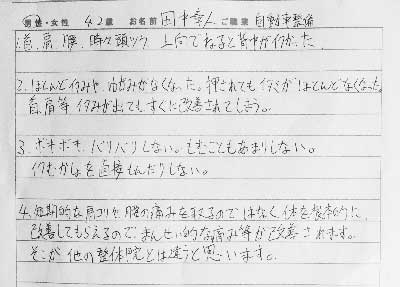 男性・女性 42歳 お名前 田中幸人 ご職業 自動車整備
1.首、肩、腰、時々頭ツウ 上向でねると背中が付かった
2.ほとんどイタみや、ゆがみがなくなった。押されてもイタミがほとんどなくなった。
首、肩等 イタみが出てもすぐに改善されてしまう。
3.ボキボキ、バリバリしない。もむこともあまりしない。
イタむかしょを直接もんだりしない。
4.短期的な肩コリや腰の痛みを取るのではなく体を根本的に
改善してもらえるのでまんせい的な痛み等が改善されます。
そこが他の整体院とは違うと思います。